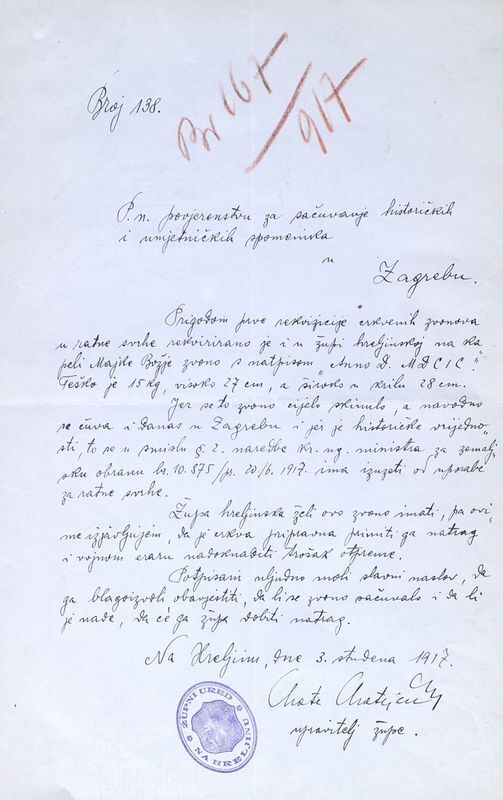 Broj 138.
Br 167/917
P. n. povjerenstvu za sačuvanje historičkih
i umjetničkih spomenika
u
Zagrebu.
Prigodom prve rekvizicije crkvenih zvonova
u ratne svrhe rekvirirano je i u župi hreljinskoj na ka
peli Majke Božje zvono s natpisom "Anno D. MDCIC".
Teško je 15 kg, visoko 27 cm, a široko u krilu 28 cm.
Jer se to zvono cijelo skinulo, a navodno
se čuva i danas u Zagrebu i jer je historičke vrijedno-
sti, to se u smislu §. 2. naredbe kr. ug. ministra za zemalj-
sku obranu br. 10.875/ps. 20/6. 1917. ima izuzeti od uporabe
za ratne svrhe.
Župa hreljinska želi ovo zvono imati, pa ovi-
me izjavljujem, da je crkva pripravna primiti ga natrag
i vojnom eraru nadoknaditi trošak otpreme.
Potpisani uljudno moli slavni naslov, da
ga blagoizvoli obavjestiti, da li se zvono sačuvalo i da li
je nade, da će ga župa dobiti natrag.
Na Hreljinu, dne 3. studena 1917.
Mate
upravitelj župe.
ŽUPNI URED
NA HRELJINU